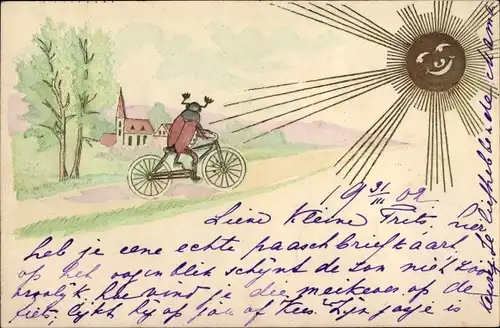 9 31/III 02
Lieve Kleine Frits, hier
heb je eene echte paaschbriefkaart
op het oogenblik schijnt de zon niet zoo
vroolijk, hoe vind je die meikever op de
fiets, lijkt hij op jou of Kees. Zijn jasje is